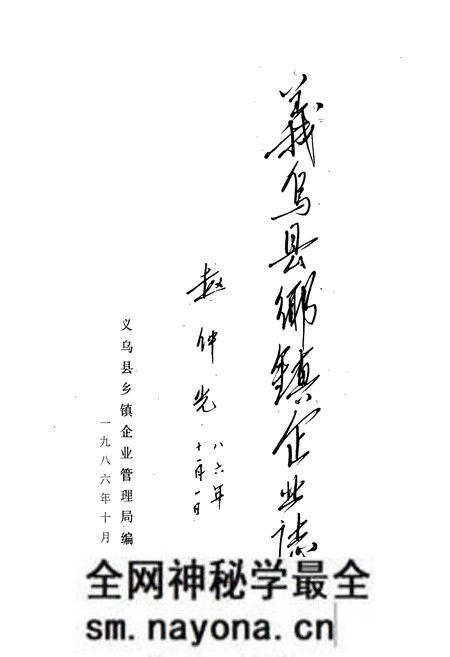 義乌县鄉鎮企业誌
赵仲光
八六年
十一月一日
义乌县乡镇企业管理局编
一九八六年十月
全网神秘学最全
sm.nayona.cn